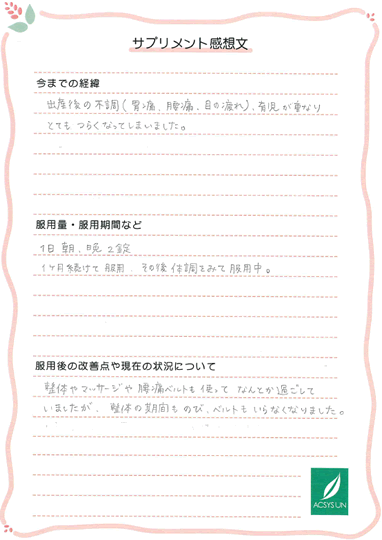 サプリメント感想文
今までの経緯
出産後の不調(胃痛、腰痛、目の疲れ)、育児が重なり
とてもつらくなってしまいました。
服用量・服用期間など
1日 朝、晩 2錠
1ヶ月続けて服用、その後体調をみて服用中。
服用後の改善点や現在の状況について
整体やマッサージや腰痛ベルトも使ってなんとか過ごして
いましたが、整体の期間ものび、ベルトもいらなくなりました。
ACSYS UN